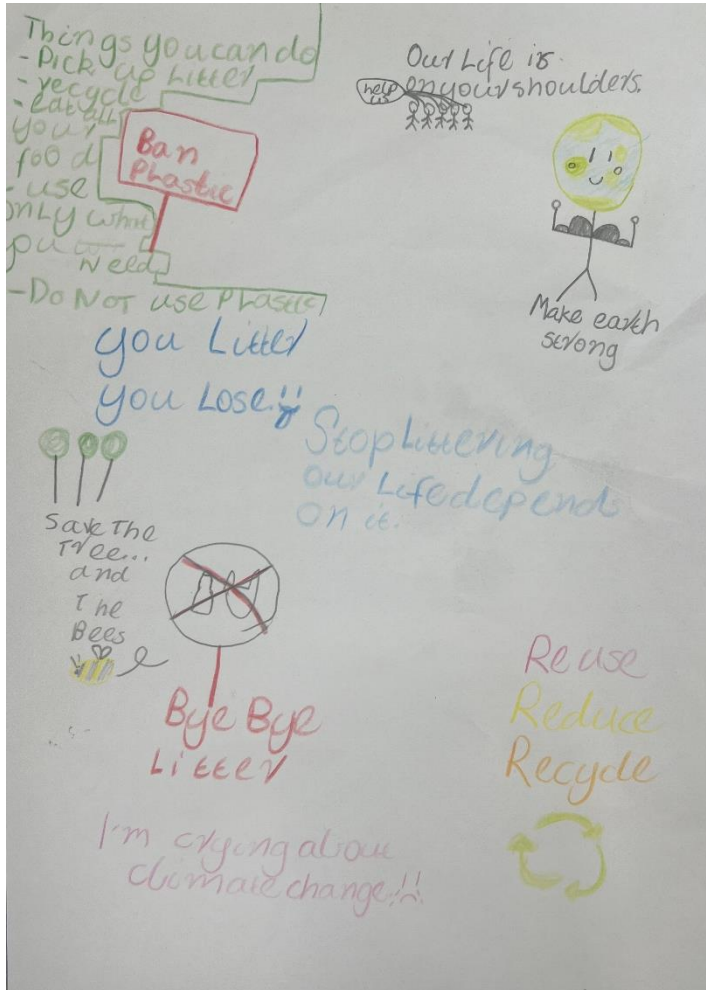 Things you can do
- Pick up Litter
- recycle
- eat all
your
food
- use
only what
you
Need
- Do Not use Plastic
Ban
Plastic
Our Life is
on your shoulders.
help
us
Make earth
strong
you Litter
you Lose!!
Stop Littering
our Life depends
on it.
Save The
Tree...
and
The
Bees
Bye Bye
Litter
Reuse
Reduce
Recycle
I'm crying about
climate change!!